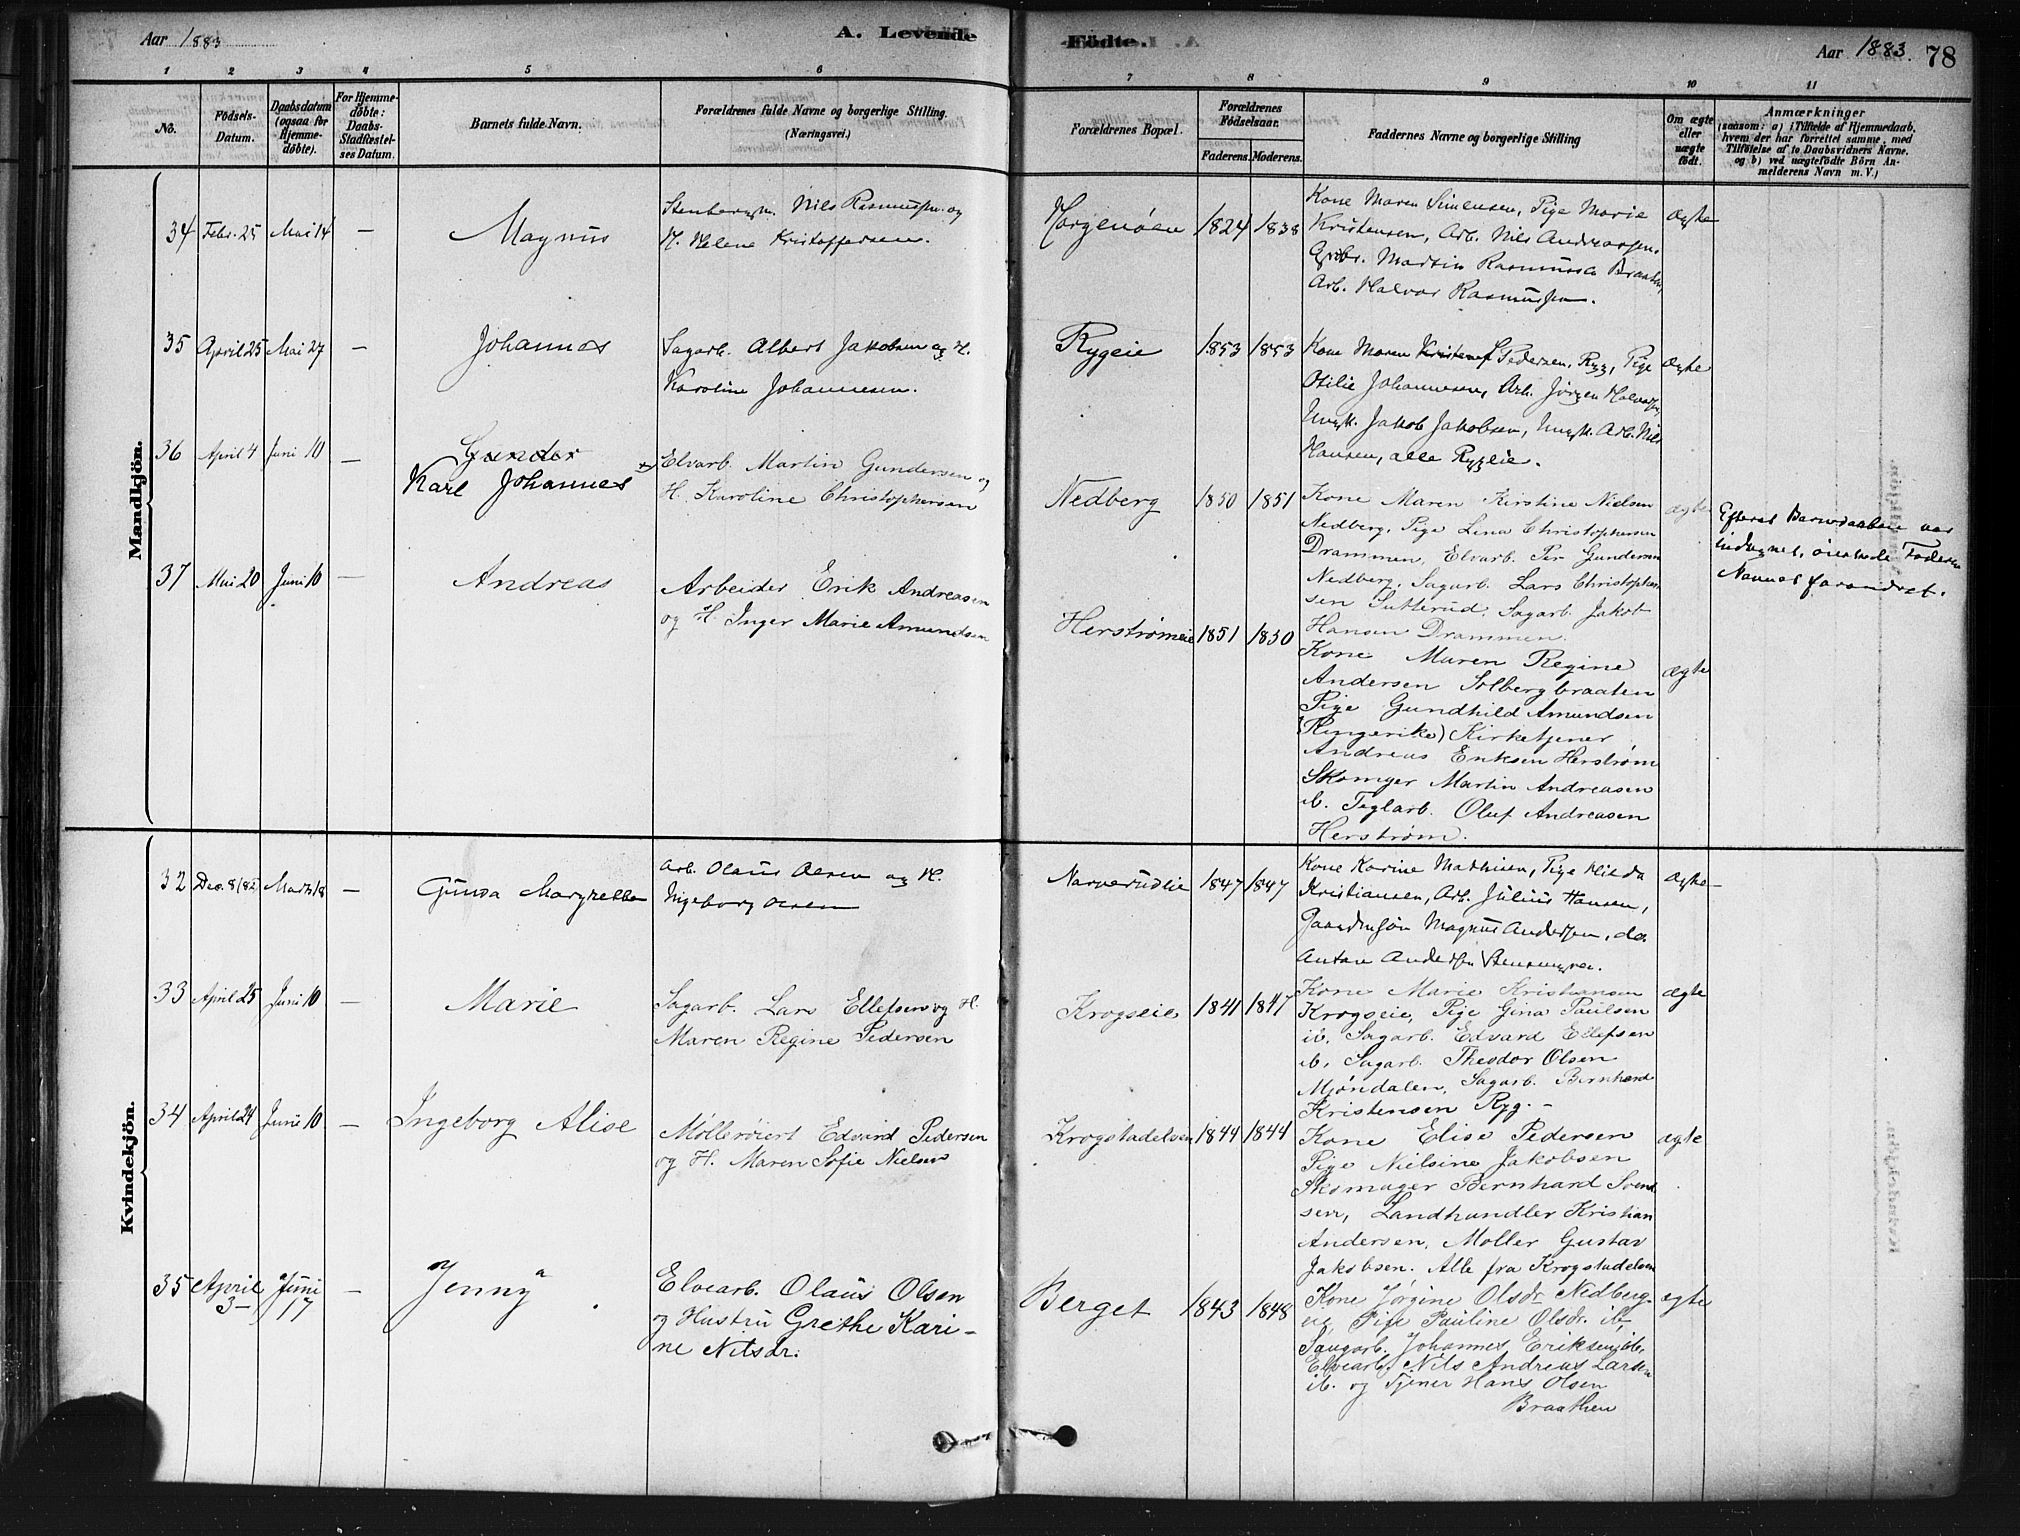 Aar 1883
A. Levende
Födte.
Aar 1883.
78
1 2 3 4 5 6 7 8 9 10 11
No.
Födsels-
Datum.
Daabsdatum
(ogsaa for
Hjemme-
döbte).
For Hjemme-
döbte:
Daabs-
Stadfæstel-
ses Datum.
Barnets fulde Navn.
Forældrenes fulde Navne og borgerlige Stilling.
(Næringsvei.)
Forældrenes Bopæl.
Forældrenes
Födselsaar.
Faderens. Moderens.
Faddernes Navne og borgerlige Stilling
Om ægte
eller
uægte
födt.
Anmærkninger
(saasom: a) i Tilfælde af Hjemmedaab,
hvem der har forrettet samme, med
Tilföielse af to Daabsvidners Navne,
og b) ved uægtefödte Börn An-
melderens Navn m. V.)
Mandkjön.
34 Febr. 25 Mai 14 —
Magnus
Nils Rasmussen og
H. Helene Kristoffersen.
Horgenöen 1824 1838
Kone Maren Simensen, Pige Marie
Kristensen, Arb. Nils Andreassen,
Martin Rasmussen Braaten,
Arb. Halvor Rasmussen.
ægte
35 April 25 Mai 27 —
Johannes
Sagarb. Albert Jakobsen og H.
Karoline Johannesen.
Rygeie 1853 1853
Kone Maren Pedersen, Ryg, Pige
Otilie Johannesen, Arb. Jörgen Halvorsen,
Ungk. Jakob Jakobsen, Ungk. Arb. Nils
Hansen, alle Rygeie.
ægte
36 April 4 Juni 10 —
Gunder
Karl Johannes
Elvarb. Martin Gundersen og
H. Karoline Christophersen
Nedberg 1850 1851
Kone Maren Kirstine Nielsen
Nedberg, Pige Lina Christophersen
Drammen, Elvarb. Per Gundersen
Nedberg, Sagarb. Lars Christopher
sen Sutterud, Sagarb. Jakob
Hansen Drammen.
ægte
Efterat Barnedaaben var
indtegnet, önskede Faderen
Navnet forandret.
37 Mai 20 Juni 10 —
Andreas
Arbeider Erik Andreasen
og H. Inger Marie Amundsen
Herstrømeie 1851 1850
Kone Maren Regine
Andersen Solbergbraaten
Pige Gundhild Amundsen
(Ringerike) Kirketjener
Andreas Eriksen Herstrøm
Skomger Martin Andreasen
ib. Teglarb. Oluf Andreasen
Herstrøm.
ægte
Kvindekjön.
32 Dec. 8 (82) Marts 18 —
Gunda Margrethe
Arb. Olaus Olsen og H.
Ingeborg Olsen
Narverudeie 1847 1847
Kone Karine Mathisen, Pige Hilda
Kristiansen, Arb. Julius Hansen,
Magnus Anderssen, do.
Anton Anderssen
ægte
33 April 25 Juni 10 —
Marie
Sagarb. Lars Ellefsen og H.
Maren Regine Pedersen
Krogseie 1841 1847
Kone Marie Kristiansen
Krogseie, Pige Gina Paulsen
ib. Sagarb. Edvard Ellefsen
ib, Sagarb. Theodor Olsen
Mjøndalen, Sagarb. Bernhard
Kristensen Ryg. -
ægte
34 April 24 Juni 10 —
Ingeborg Alise
Edvard Pedersen
og H. Maren Sofie Nielsen
Krogstadelven 1844 1844
Kone Elise Pedersen
Pige Nielsine Jakobsen
Skomager Bernhard Svend
sen, Landhandler Kristian
Andersen, Møller Gustav
Jakobsen. Alle fra Krogstadelven
ægte
35 April 3- Juni 17 —
Jenny
Elvearb. Olaus Olsen
og Hustru Grethe Kari-
ne Nilsdr.
Berget 1843 1848
Kone Jørgine Olsdr Nedberg-
eie, Pige Pauline Olsdr. ib,
Saugarb. Johannes Eriksen ib,
Elvearb. Nils Andreas Larsen
ib. og Tjener Hans Olsen
Braathen
ægte